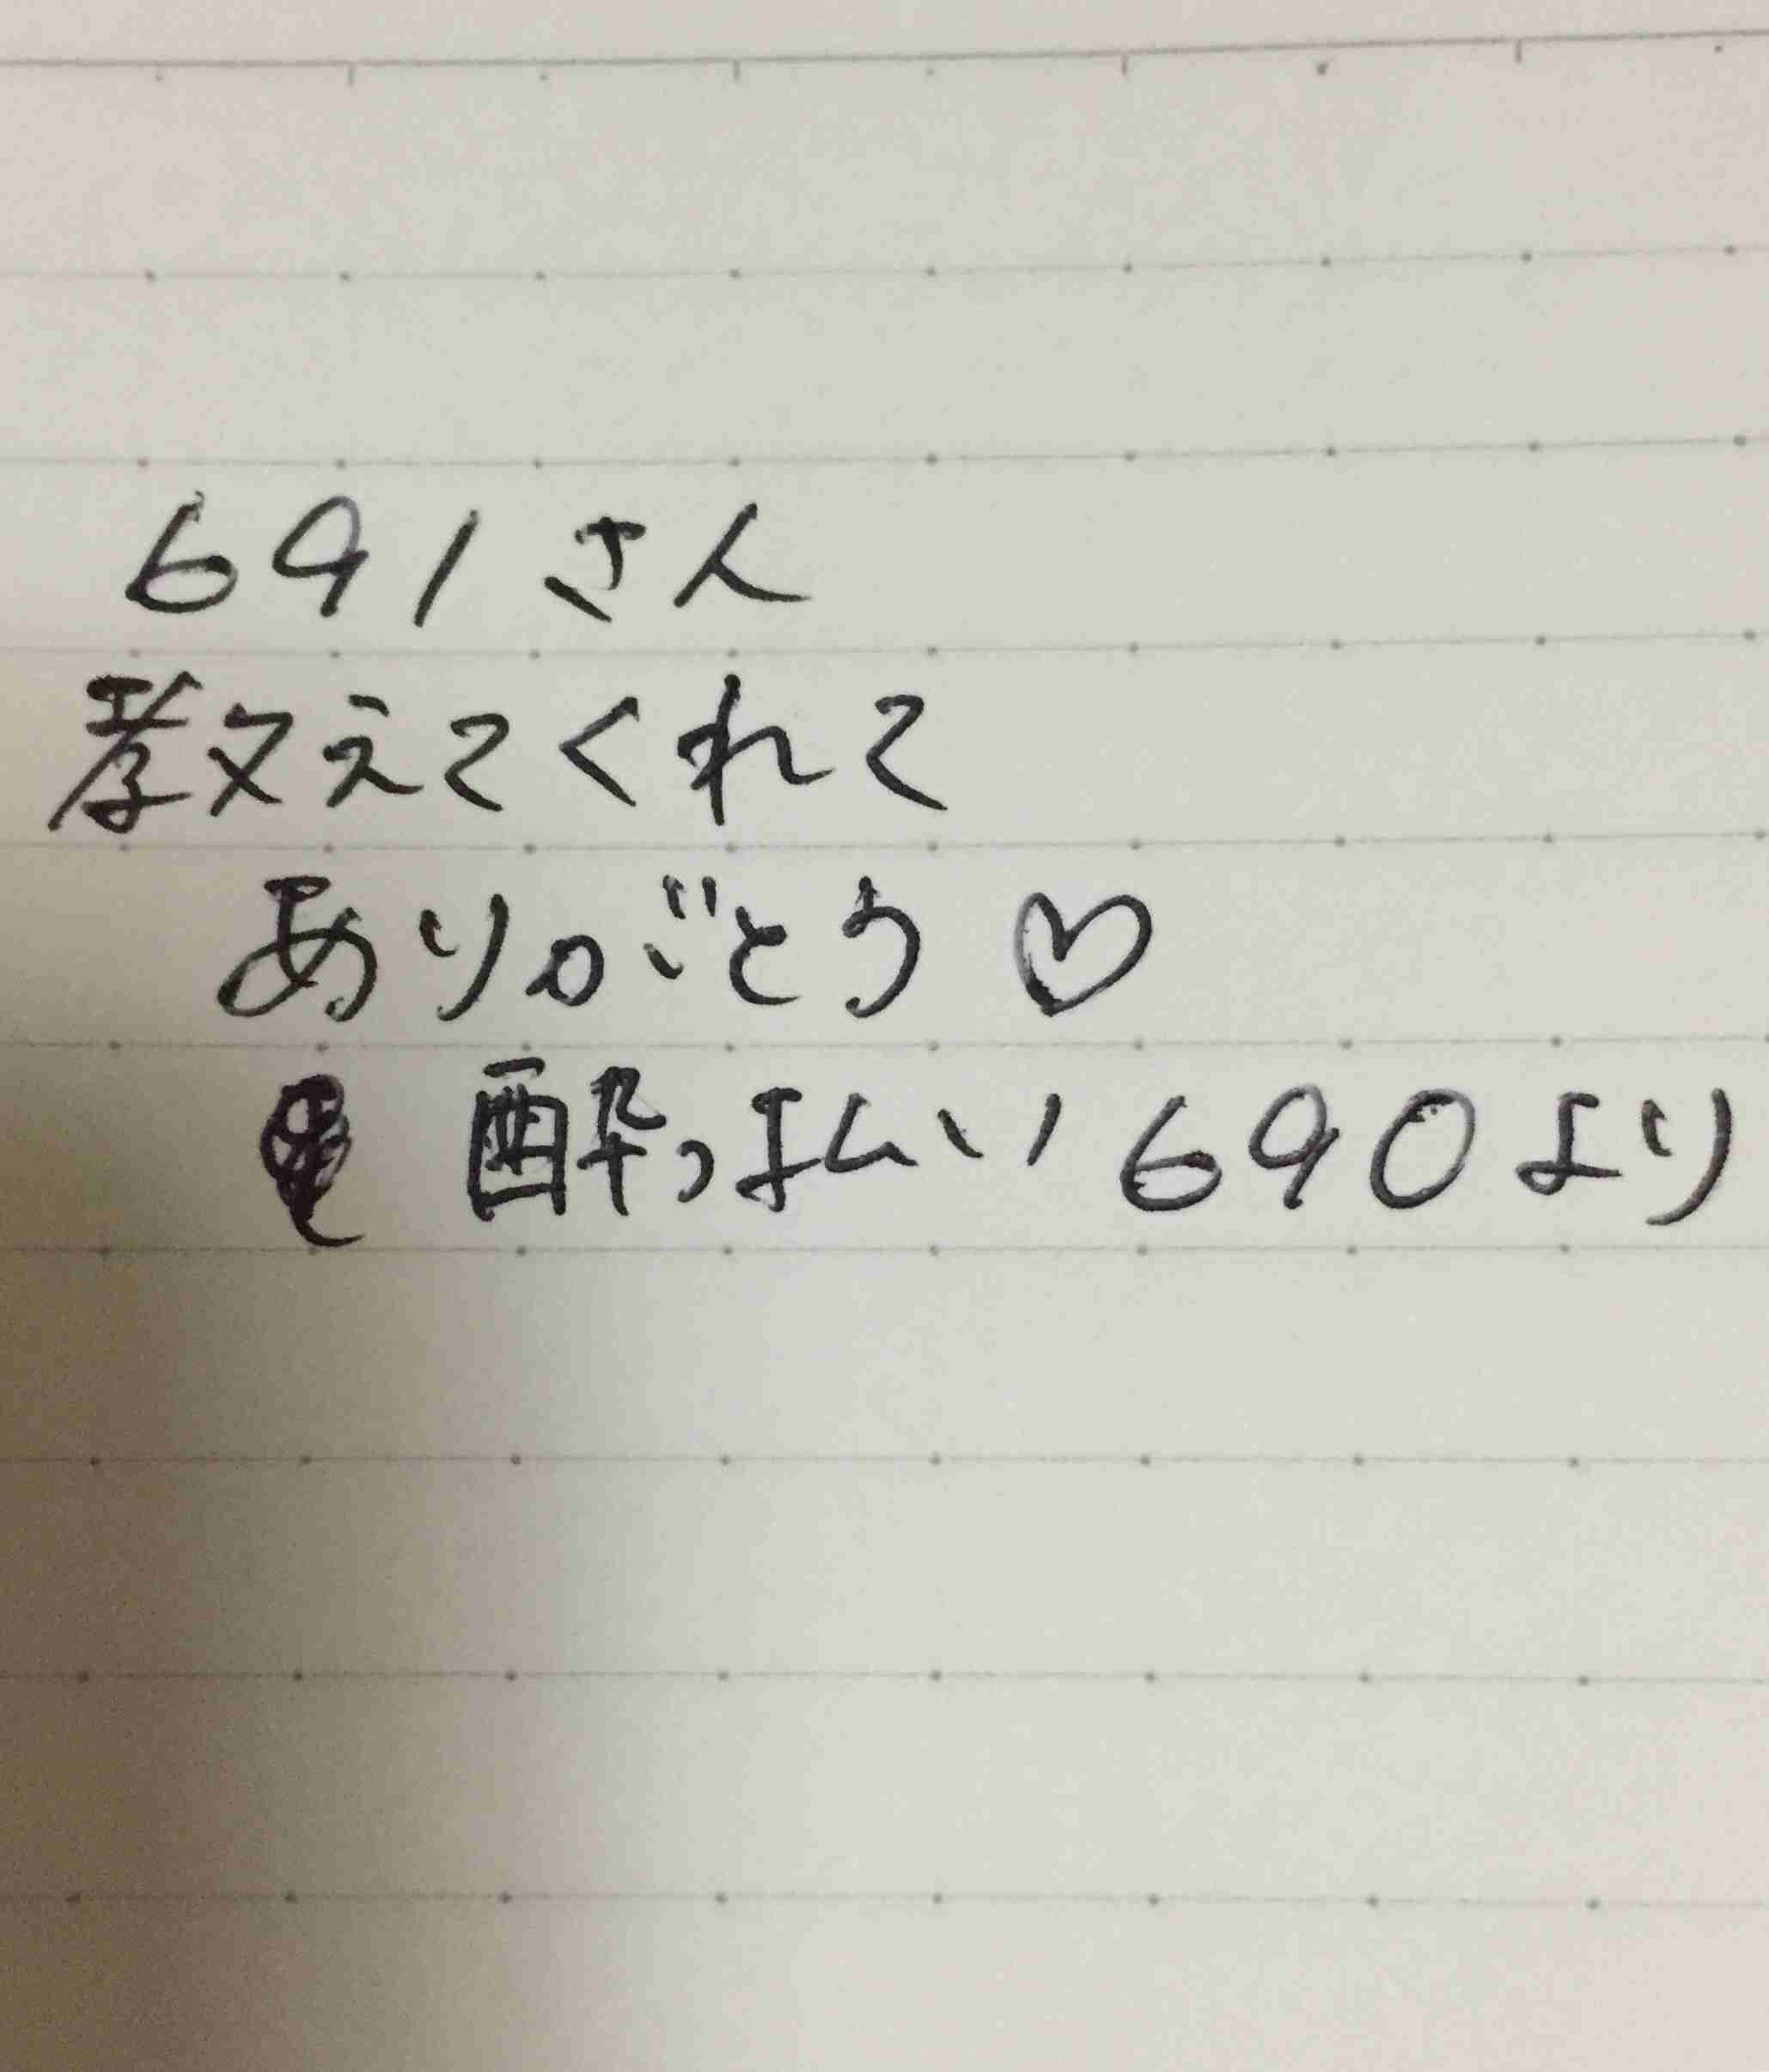 691さん
教えてくれて
ありがとう♡
酔っ払い690より